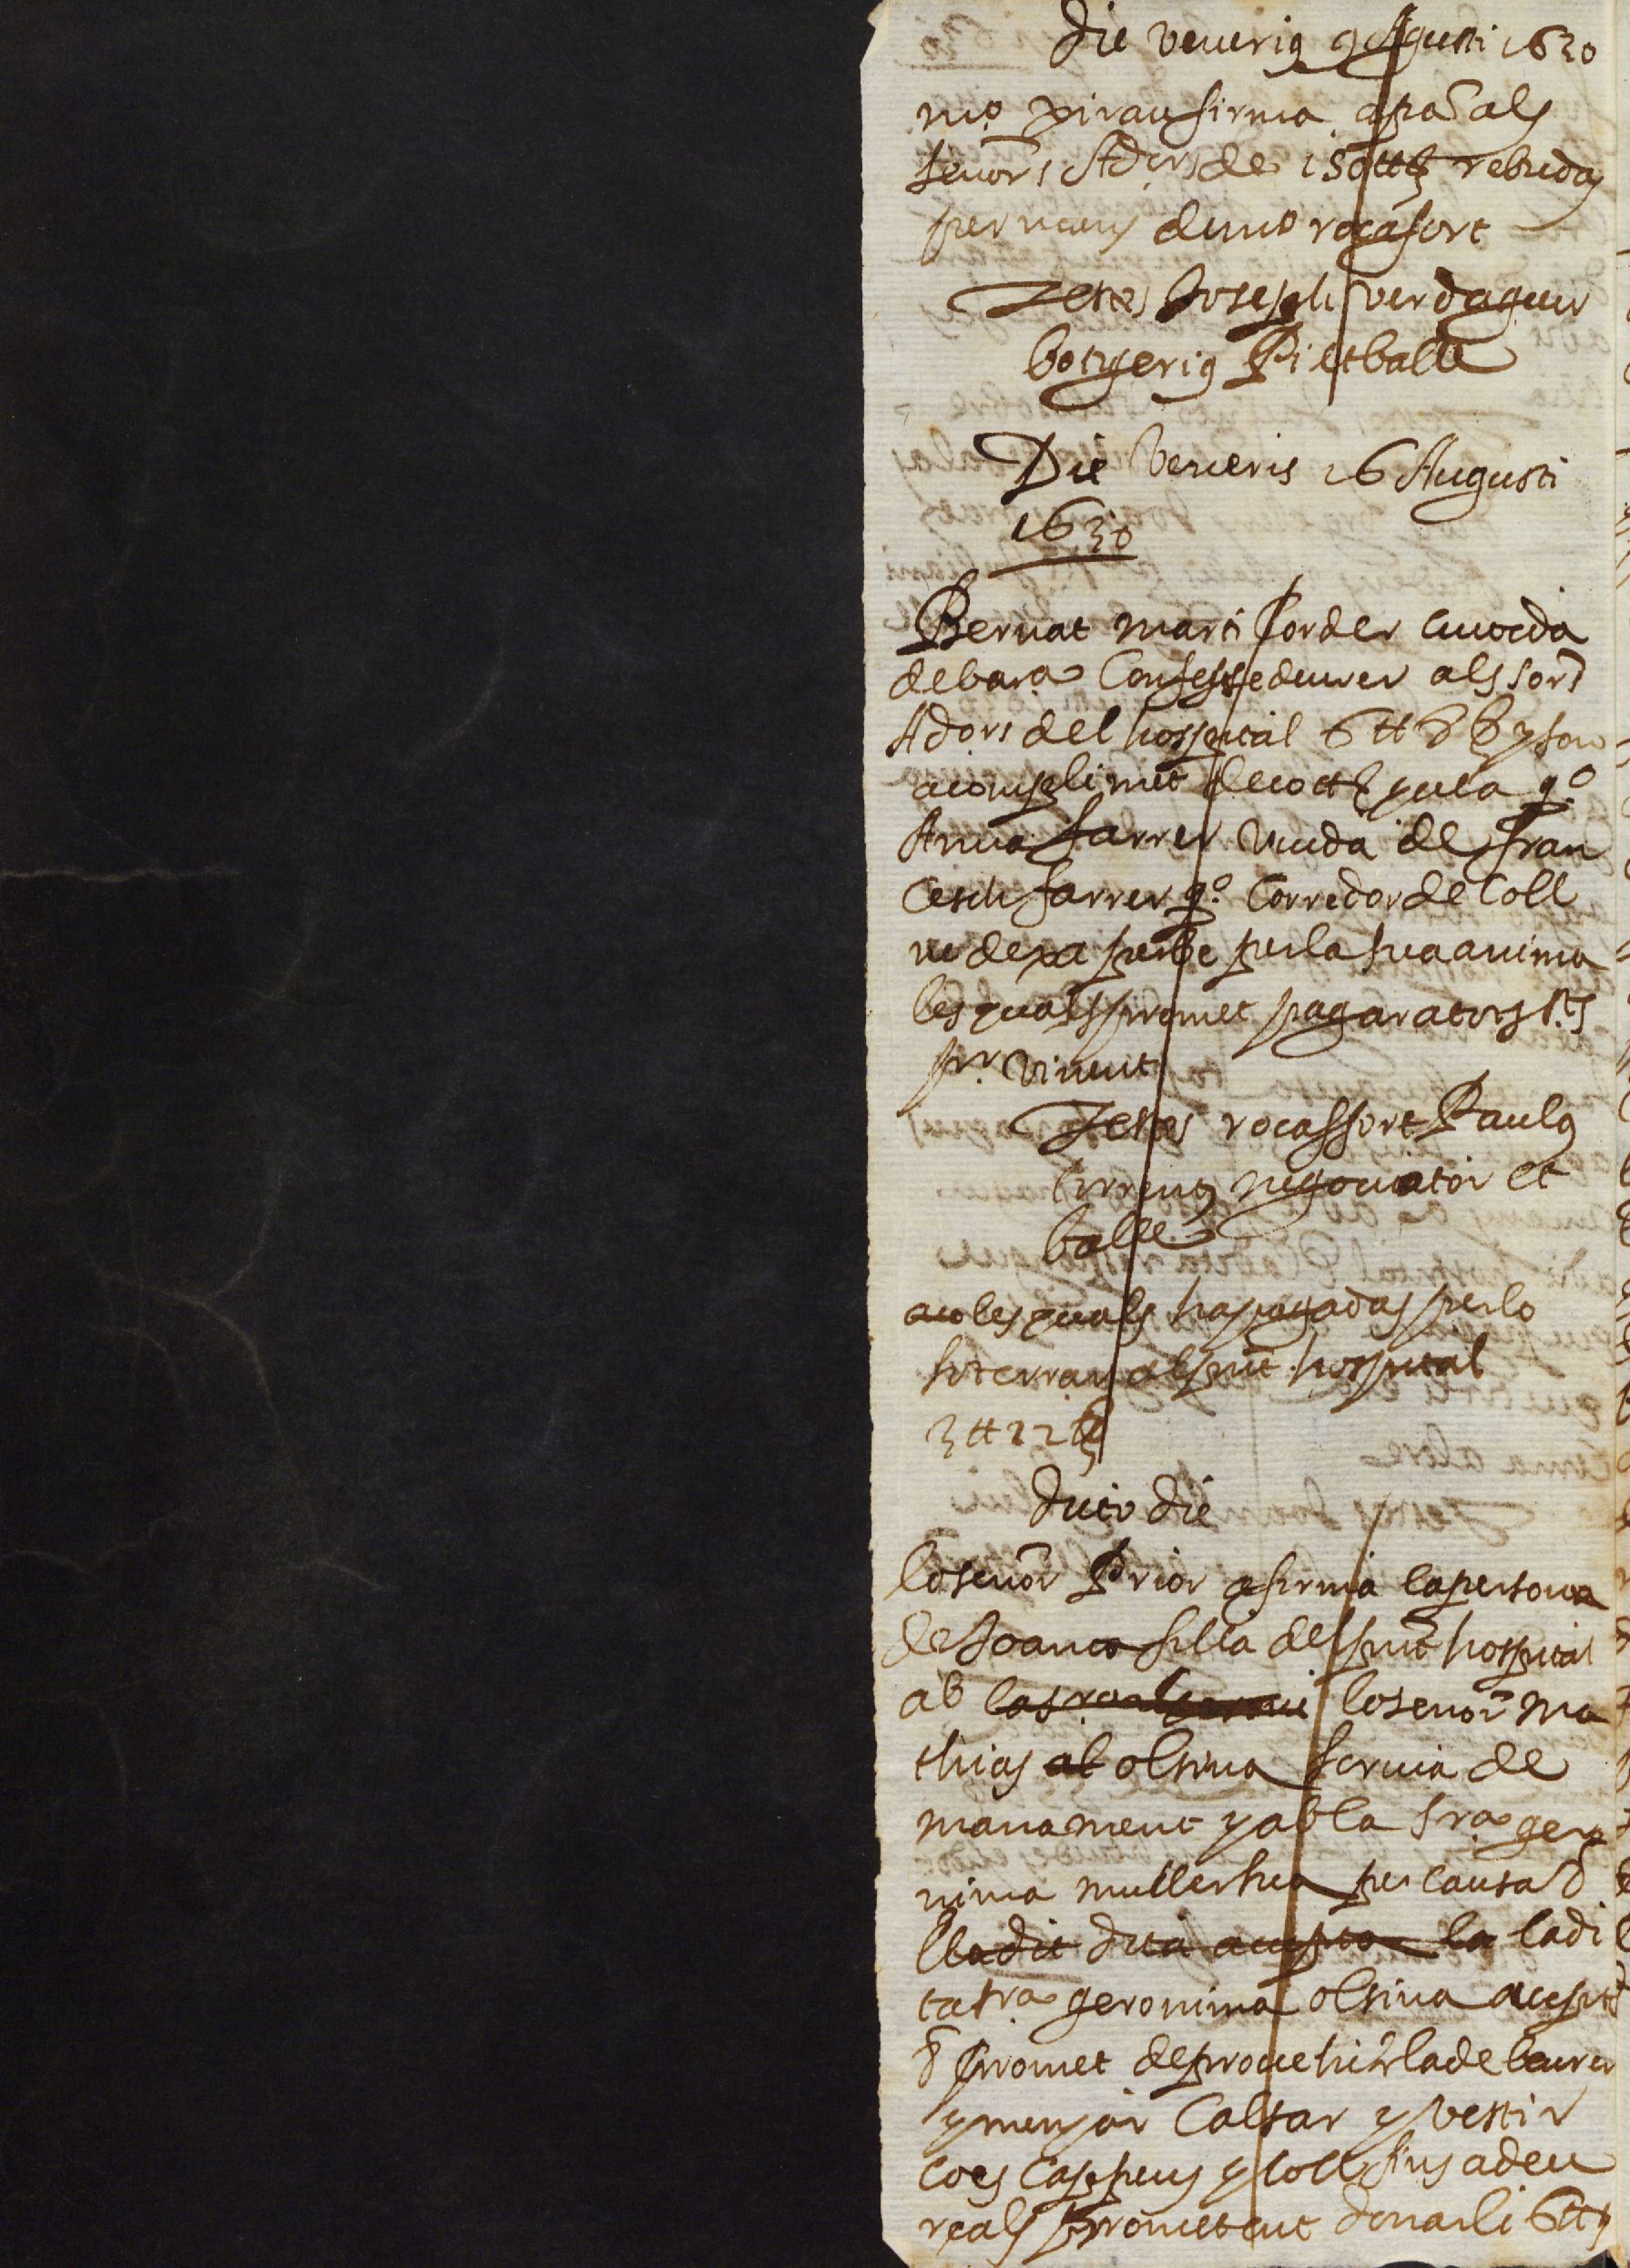 Die veneris 9 Agusti 1630
mo. Pirau firma apoca als
senors Adors de 150 tt rebudas
per mans de mo rocafort
Testes Joseph verdaguer
botygerius Pi et balle
Die Veneris 16 Augusti
1630
Bernat marti corder
de bara Confesse deurer als sors
Adors del hospital 6 tt y son
acompliment de 10 tt que la qo.
Anna farrer viuda de fran
cesch farrer qo. Corredor de Coll
ne dexa perbe per la sua anima
les quals promet pagar a tots sts
pr. vinent
Testes rocassort Paulus
torrens negociator et
balle
les quals ha pagadas per lo
soterrar al pnt hospital
3 tt 12
Dicto die
lo senor Prior afirma la persona
de Joana filla del pnt hospital
ab lo senor Ma
thias al olsina servia de
manament y ab la sra gero
nima muller sua per causa
dita accepta la la di
ta sra geronima olsina accepta
promet de provehirla de beurer
y menjar Calsar y vestir
coes Cap peus y coll fins a deu
reals prometent donarli 6 tt